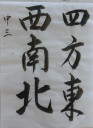 四方東
西南北
中三